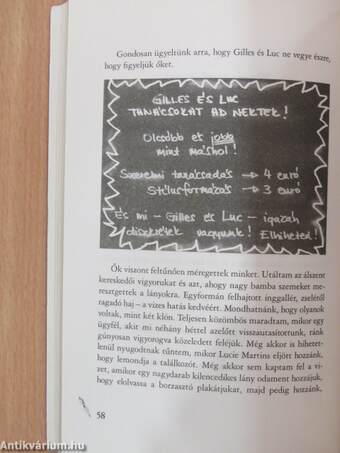 Gondosan ügyeltünk arra, hogy Gilles és Luc ne vegye észre,
hogy figyeljük őket.
GILLES ÉS LUC
TANÁCSOKAT AD NEKTEK!
Olcsóbb és jobb
mint máshol!
Szerelmi tanácsadás → 4 euró
Stílusformázás → 3 euró
És mi - Gilles és Luc - igazán
diszkrétek vagyunk! Elhiheted!
Ők viszont feltűnően méregettek minket. Utáltam az álszent
kereskedői vigyorukat és azt, ahogy nagy bamba szemeket me-
resztgettek a lányokra. Egyformán felhajtott inggallér, zselétől
ragadó haj – a vizes hatás kedvéért. Mondhatnánk, hogy olyanok
voltak, mint két klón. Teljesen közömbös maradtam, mikor egy
ügyfél, akit mi néhány héttel azelőtt visszautasítottunk, ránk
gúnyosan vigyorogva közeledett feléjük. Még akkor is hihetet-
lenül nyugodtnak tűntem, mikor Lucie Martins eljött hozzánk,
hogy lemondja a találkozót. Még akkor sem kaptam fel a vi-
zet, amikor egy nagydarab kilencedikes lány odament hozzájuk,
hogy elolvassa a borzasztó plakátjukat, majd pedig hozzánk,
58
Antikvárium.hu